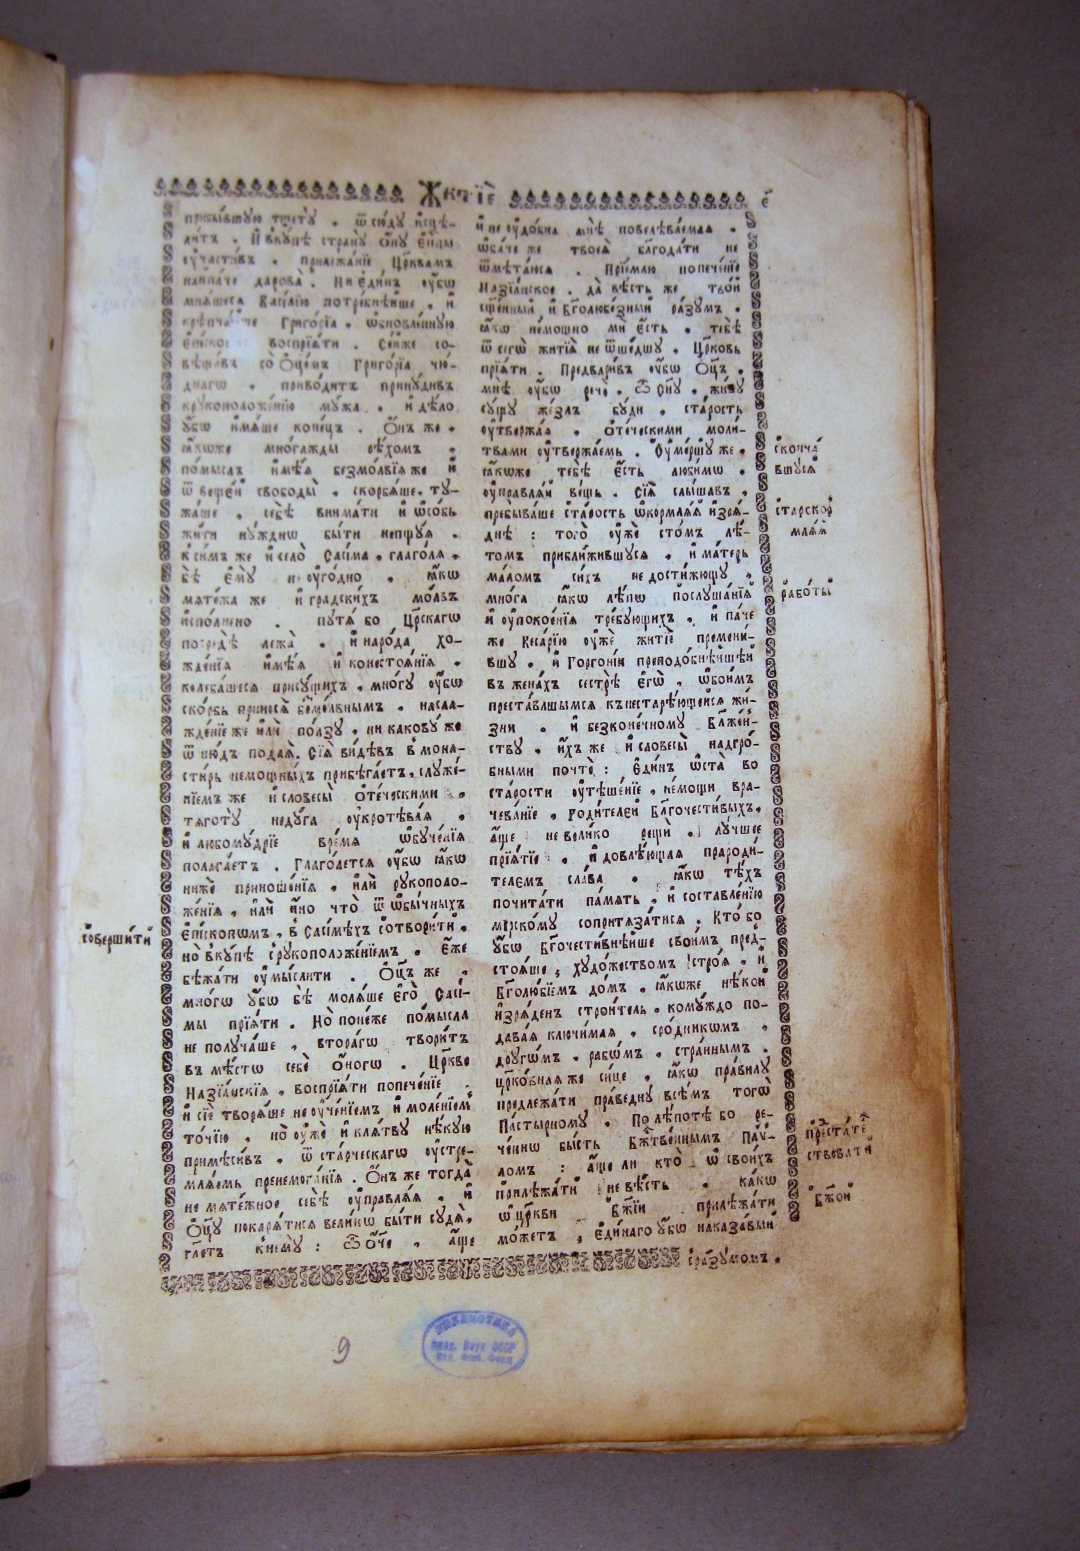 Житїе
є҃
прибывшую тщету . ѿсюду исцѣ-
литъ . И вкупѣ страну ону єпⷭ҇кпы
оучастивъ . прилежанїе Цр҃квамъ
наипаче дарова . Ни єдинъ оубѡ
мнящеся Василїю потребнѣише . и
крѣпчайше Григорїа . ѡбновлѣнную
воспрїяти . Сеиже со-
вѣщавъ со Оц҃емъ Григорїа чю-
днаго . приводитъ принудивъ
крукоположенїю мужа . и дѣло
убѡ имяше конецъ . Онъ же .
якоже многажды рѣхомъ .
помыслъ имѣя безмолвїя же и
ѿ вещеи свободы . скорбяше . ту-
жаше . себѣ внимати и ѡсобь
жити нуждно быти непщуя .
ксимъ же и село Сасїма . глаголя .
бѣ єму не оугодно . якѡ
мятежа же и градскихъ молвъ
исполнено . путя бо Цр҃скагѡ
посредѣ лежа . и народа хо-
жденїя имѣя и конестоянїя .
колебащеся присущихъ . многу оубѡ
скорбь приносѧ безмолвнымъ . насла-
жденїе же или ползу . ни какову же
ѿнюдъ подая . Сїя видѣвъ в мона-
стирь немощныхъ прибѣгаетъ . служе-
нїемъ же и словесы отеческими .
тяготу недуга оукротѣвая .
и любомудрїе время ѡбученїя
полагаетъ . Глаголется оубѡ якѡ
ниже приношенїя . или рукополо-
женїя . или ино что ѿ ѡбычныхъ
єпископѡмъ . в Сасїмѣхъ сотворити .
но вкупѣ срукоположенїемъ . єже
бѣжати оумыслити . Оц҃ъ же .
многѡ убѡ бѣ моляше єго Сасї-
мы прїяти . Но понеже помысла
не получаше . втораго творитъ
въ мѣстѡ себе оного . Цр҃кве
Назїанскїя . воспрїяти попеченїе .
и сїе творяше не оученїемъ и моленїемъ
точїю . но оуже и клятву нѣкую
примѣсивъ . ѿ старческагѡ оустре-
мляемь пренемоганїя . Онъ же тогда
не мятежное себѣ оуправляя . и
Оц҃у покарятися великѡ быти судя .
гл҃етъ к нему : Ѽ Оч҃е . аще
и не оудобна мнѣ повелѣваемая .
ѡбаче же твоея благодати не
ѿмѣтаюся . Прїемлю попеченїе
Назїанское . да вѣсть же твои
сщ҃енныи и Бг҃олюбезныи разумъ .
якѡ немощно ми єсть . тебѣ
ѿ сегѡ житїя не ѿшедшу . Цр҃ковь
прїяти . Предваривъ оубѡ Оц҃ъ .
мнѣ оубѡ рече . Ѽ Сн҃у . живу
сущу жезлъ буди . старость
оутвержая . Отеческими моли-
твами оутвержаемь . Оумершу же .
якоже тебѣ єсть любимѡ .
оуправляи вещь . Сїя слышавъ .
пребываше старость ѡкормляя изря-
днѣ : того оуже стомъ лѣ-
томъ приближившуся . и матерь
маломъ сихъ не достижющу .
многа якѡ лѣпѡ послушанїя
и оупокоенїя требующихъ . и паче
же Кесарїю оуже житїе премени-
вшу . и Горгонїи преподобнѣишеи
въ женахъ сестрѣ єгѡ . ѡбоимъ
преставлшымся къ нестарѣющейся жи-
зни . и безконечному Блж҃ен-
ству . ихъ же и словесы надгро-
бными почте : єдинъ ѡста во
старости оутѣшенїе . немощи вра-
чеванїе . родителеи Бл҃гочестивыхъ .
аще не велико рещи . лучшее
прїятїе . и довлѣющая прароди-
телемъ слава . якѡ тѣхъ
почитати память . и составленїю
мирскому сопритязатися . Кто бо
убѡ Бг҃очестивнѣише своимъ пред-
стояше ; художествомъ строя . и
Бг҃олюбїемъ дѡмъ . якоже нѣкои
изряденъ строитель . комуждо по-
давая ключимая . сродникѡмъ .
другѡмъ . рабѡмъ . страннымъ .
црк҃овная же сице . якѡ правилу
предлежати праведну всѣмъ тогѡ
Пастырному . По лѣпотѣ бо ре-
ченно бысть Бж҃твеннымъ Пау-
ломъ : аще ли кто ѡ своихъ
прилежати не вѣсть . какѡ
ѡ цр҃кви Бж҃їи прилежати
можетъ ; єдинаго убѡ наказавыи
сразумомъ .
сконча
вшуся
старскор
мляя
работы
совершити
престате
ствовати
Бж҃ои
9
БИБЛИОТЕКА
Акад. Наук СССР